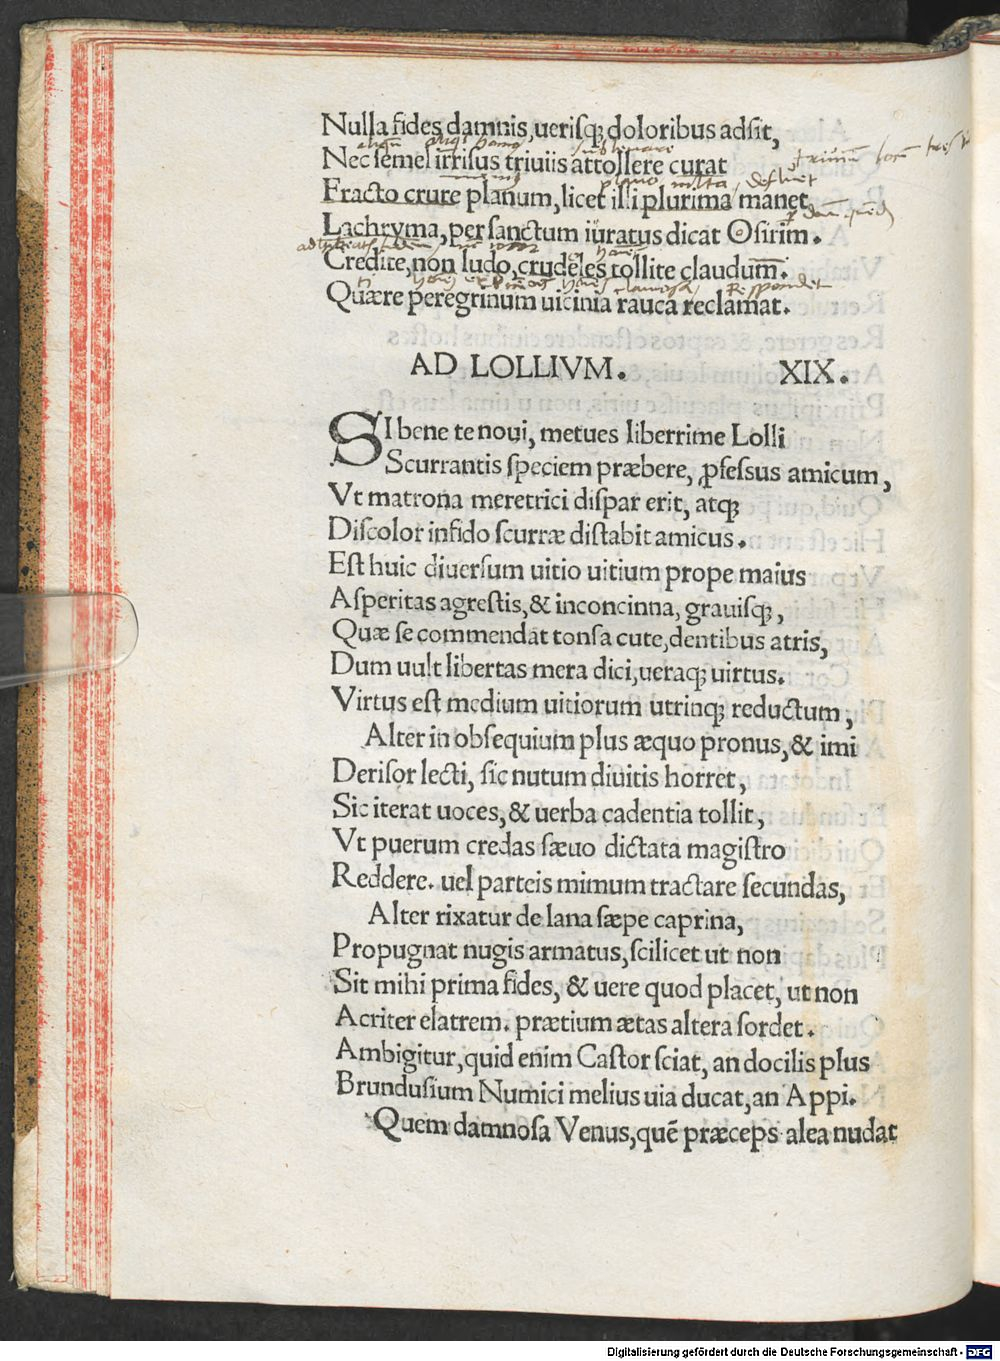 Nulla fides damnis, uerisq; doloribus adsit,
Nec semel irrisus triuiis attollere curat
Fracto crure planum, licet illi plurima manet
Lachryma, per sanctum iuratus dicat Osirim.
Credite, non ludo, crudeles tollite claudum.
Quære peregrinum uicinia rauca reclamat.
AD LOLLIVM. XIX.
SI bene te noui, metues liberrime Lolli
Scurrantis speciem præbere, ꝓfessus amicum,
Vt matrona meretrici dispar erit, atq;
Discolor infido scurræ distabit amicus.
Est huic diuersum uitio uitium prope maius
Asperitas agrestis, & inconcinna, grauisq;,
Quæ se commendat tonsa cute, dentibus atris,
Dum uult libertas mera dici, ueraq; uirtus.
Virtus est medium uitiorum utrinq; reductum,
Alter in obsequium plus æquo pronus, & imi
Derisor lecti, sic nutum diuitis horret,
Sic iterat uoces, & uerba cadentia tollit,
Vt puerum credas sæuo dictata magistro
Reddere. uel parteis mimum tractare secundas,
Alter rixatur de lana sæpe caprina,
Propugnat nugis armatus, scilicet ut non
Sit mihi prima fides, & uere quod placet, ut non
Acriter elatrem. prætium ætas altera sordet.
Ambigitur, quid enim Castor sciat, an docilis plus
Brundusium Numici melius uia ducat, an Appi.
Quem damnosa Venus, quē præceps alea nudat
Digitalisierung gefördert durch die Deutsche Forschungsgemeinschaft - DFG